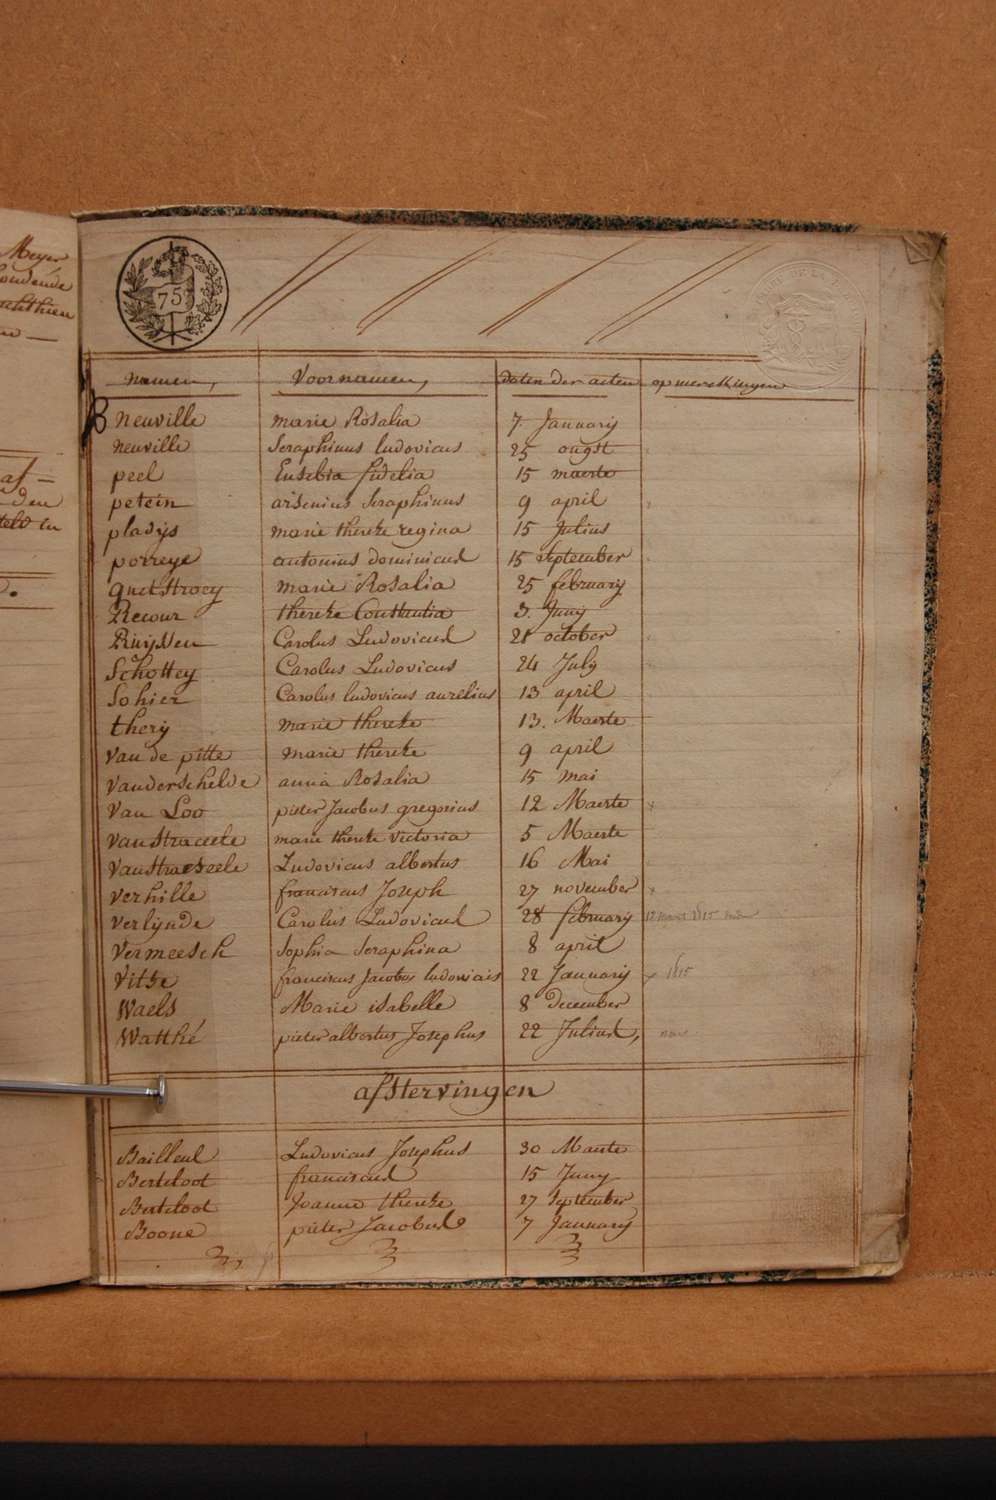 Meyer
75
namen, voornamen, daten der acten opmerckingen
Neuville marie Rosalia 7 January
neuville Seraphinus ludovicus 25 ougst
peel Eusebia fidelia 15 maerte
petein arsenius Seraphinus 9 april
pladijs marie thereze regina 15 Julius
porreye antonius dominicus 15 september
questroey marie Rosalia 25 february
Recour thereze Constantia 3. Juny
Ruijssen Carolus Ludovicus 21 october
Schottey Carolus Ludovicus 24 July
Sohier Carolus ludovicus aurelius 13 april
thery marie thereze 13. Maerte
van de pitte marie thereze 9 april
vanderschelde anna Rosalia 15 mai
van Loo pieter Jacobus gregorius 12 Maerte
van Straceele marie thereze victoria 5 Maerte
van Straeseele Ludovicus albertus 16 Mai
verhille franciscus Joseph 27 november
verlynde Carolus Ludovicus 28 february
vermeesch Sophia Seraphina 8 april
vitse franciscus Jacobus ludovicus 22 January 1815
Waels Marie isabelle 8 december
Watthé pieter albertus Josephus 22 Julius,
afstervingen
Bailleul Ludovicus Josephus 30 Maerte
Berteloot franciscus 15 Juny
Berteloot Joanna thereze 27 september
Boone pieter Jacobus 7 January